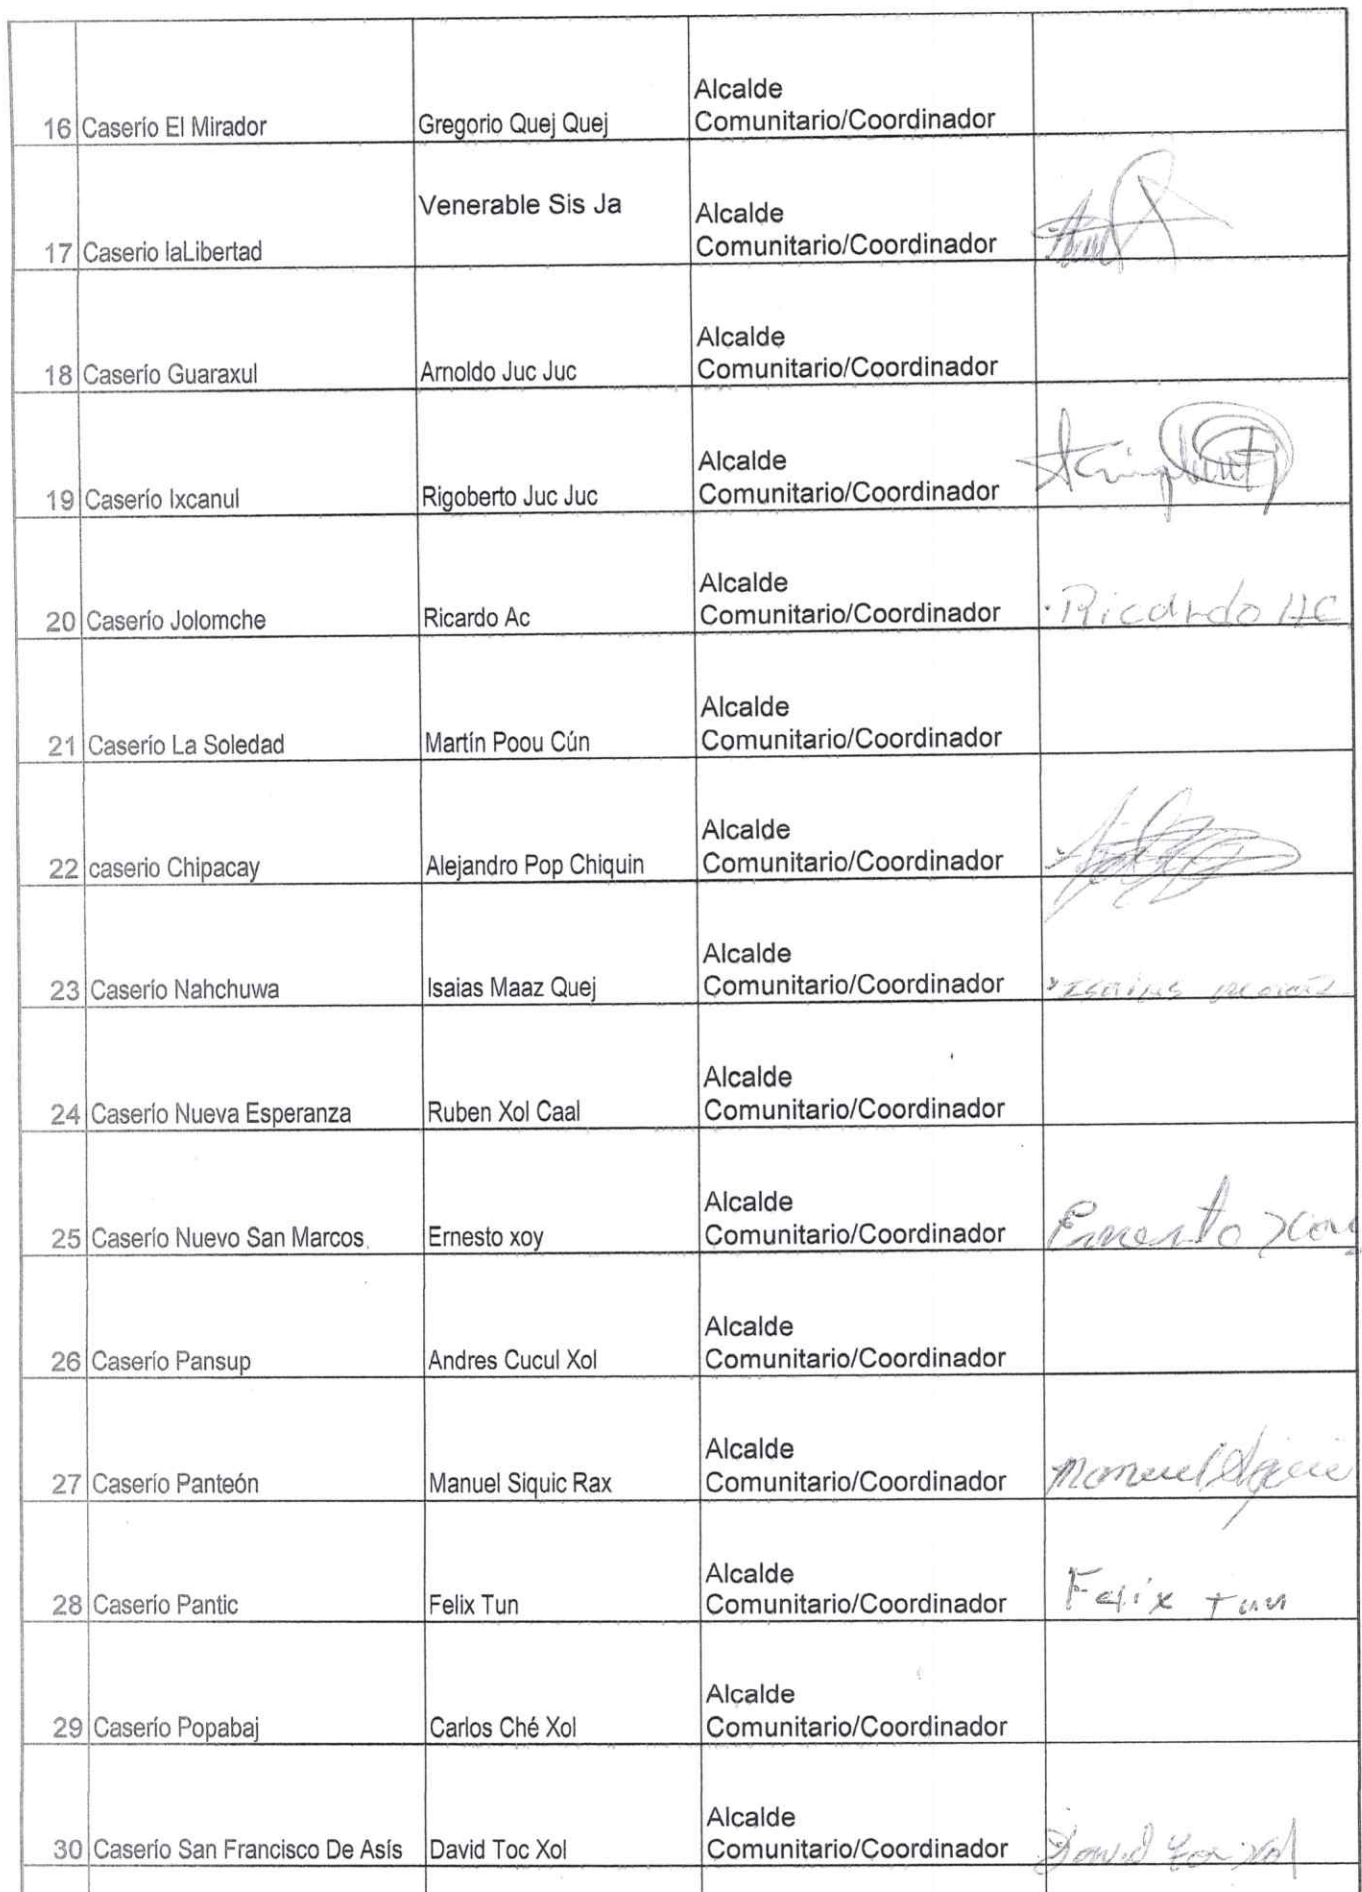 16 Caserío El Mirador Gregorio Quej Quej Alcalde
Comunitario/Coordinador
17 Caserio laLibertad Venerable Sis Ja Alcalde
Comunitario/Coordinador
18 Caserío Guaraxul Arnoldo Juc Juc Alcalde
Comunitario/Coordinador
19 Caserío Ixcanul Rigoberto Juc Juc Alcalde
Comunitario/Coordinador
20 Caserío Jolomche Ricardo Ac Alcalde
Comunitario/Coordinador Ricardo AC
21 Caserío La Soledad Martín Poou Cún Alcalde
Comunitario/Coordinador
22 caserio Chipacay Alejandro Pop Chiquin Alcalde
Comunitario/Coordinador
23 Caserío Nahchuwa Isaias Maaz Quej Alcalde
Comunitario/Coordinador Isaias
24 Caserío Nueva Esperanza Ruben Xol Caal Alcalde
Comunitario/Coordinador
25 Caserío Nuevo San Marcos Ernesto xoy Alcalde
Comunitario/Coordinador Ernesto
26 Caserío Pansup Andres Cucul Xol Alcalde
Comunitario/Coordinador
27 Caserío Panteón Manuel Siquic Rax Alcalde
Comunitario/Coordinador Manuel
28 Caserío Pantic Felix Tun Alcalde
Comunitario/Coordinador Felix tun
29 Caserío Popabaj Carlos Ché Xol Alcalde
Comunitario/Coordinador
30 Caserío San Francisco De Asís David Toc Xol Alcalde
Comunitario/Coordinador David